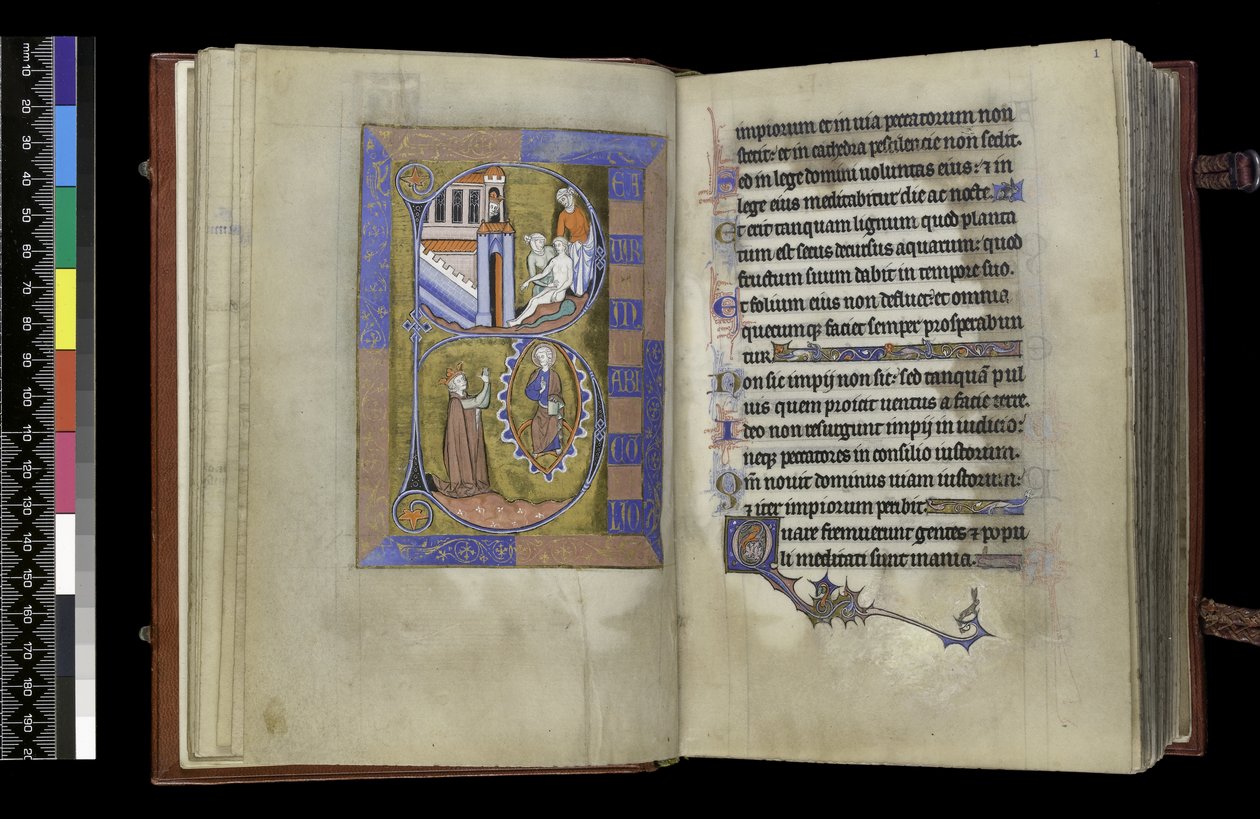 EA
TUR
M
ABI
LIO
1
impiorum et in uia peccatorum non
stetit: et in cathedra pestilencie non sedit.
Sed in lege domini uoluntas eius: ⁊ in
lege eius meditabitur die ac nocte.
Et erit tanquam lignum quod planta
tum est secus decursus aquarum: quod
fructum suum dabit in tempore suo.
Et folium eius non defluet: et omnia
quecumqꝫ faciet semper prosperabun
tur.
Non sic impij non sic: sed tanquā pul
uis quem proicit uentus a facie terre.
Ideo non resurgunt impij in iudicio:
neqꝫ peccatores in consilio iustorum.
Qm̄ nouit dominus uiam iustorum:
⁊ iter impiorum peribit.
Quare fremuerunt gentes ⁊ popu
li meditati sunt inania.
mm 10 20 30 40 50 60 70 80 90 100 110 120 130 140 150 160 170 180 190